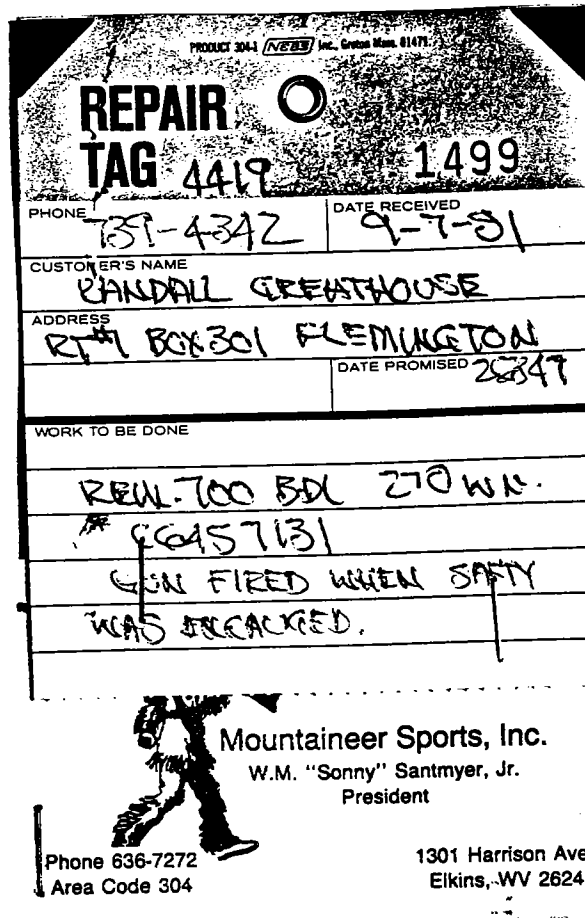 PRODUCT 304-1 NEBS Inc., Groton Mass. 01471
REPAIR
TAG 4419 1499
PHONE 739-4342 DATE RECEIVED 9-7-81
CUSTOMER'S NAME
RANDALL GREATHOUSE
ADDRESS
RT#1 BOX 301 FLEMINGTON
DATE PROMISED 26347
WORK TO BE DONE
REM. 700 BDL 270 WN.
#
GUN FIRED WHEN SAFTY
WAS
Mountaineer Sports, Inc.
W.M. "Sonny" Santmyer, Jr.
President
Phone 636-7272 1301 Harrison Ave
Area Code 304 Elkins, WV 2624